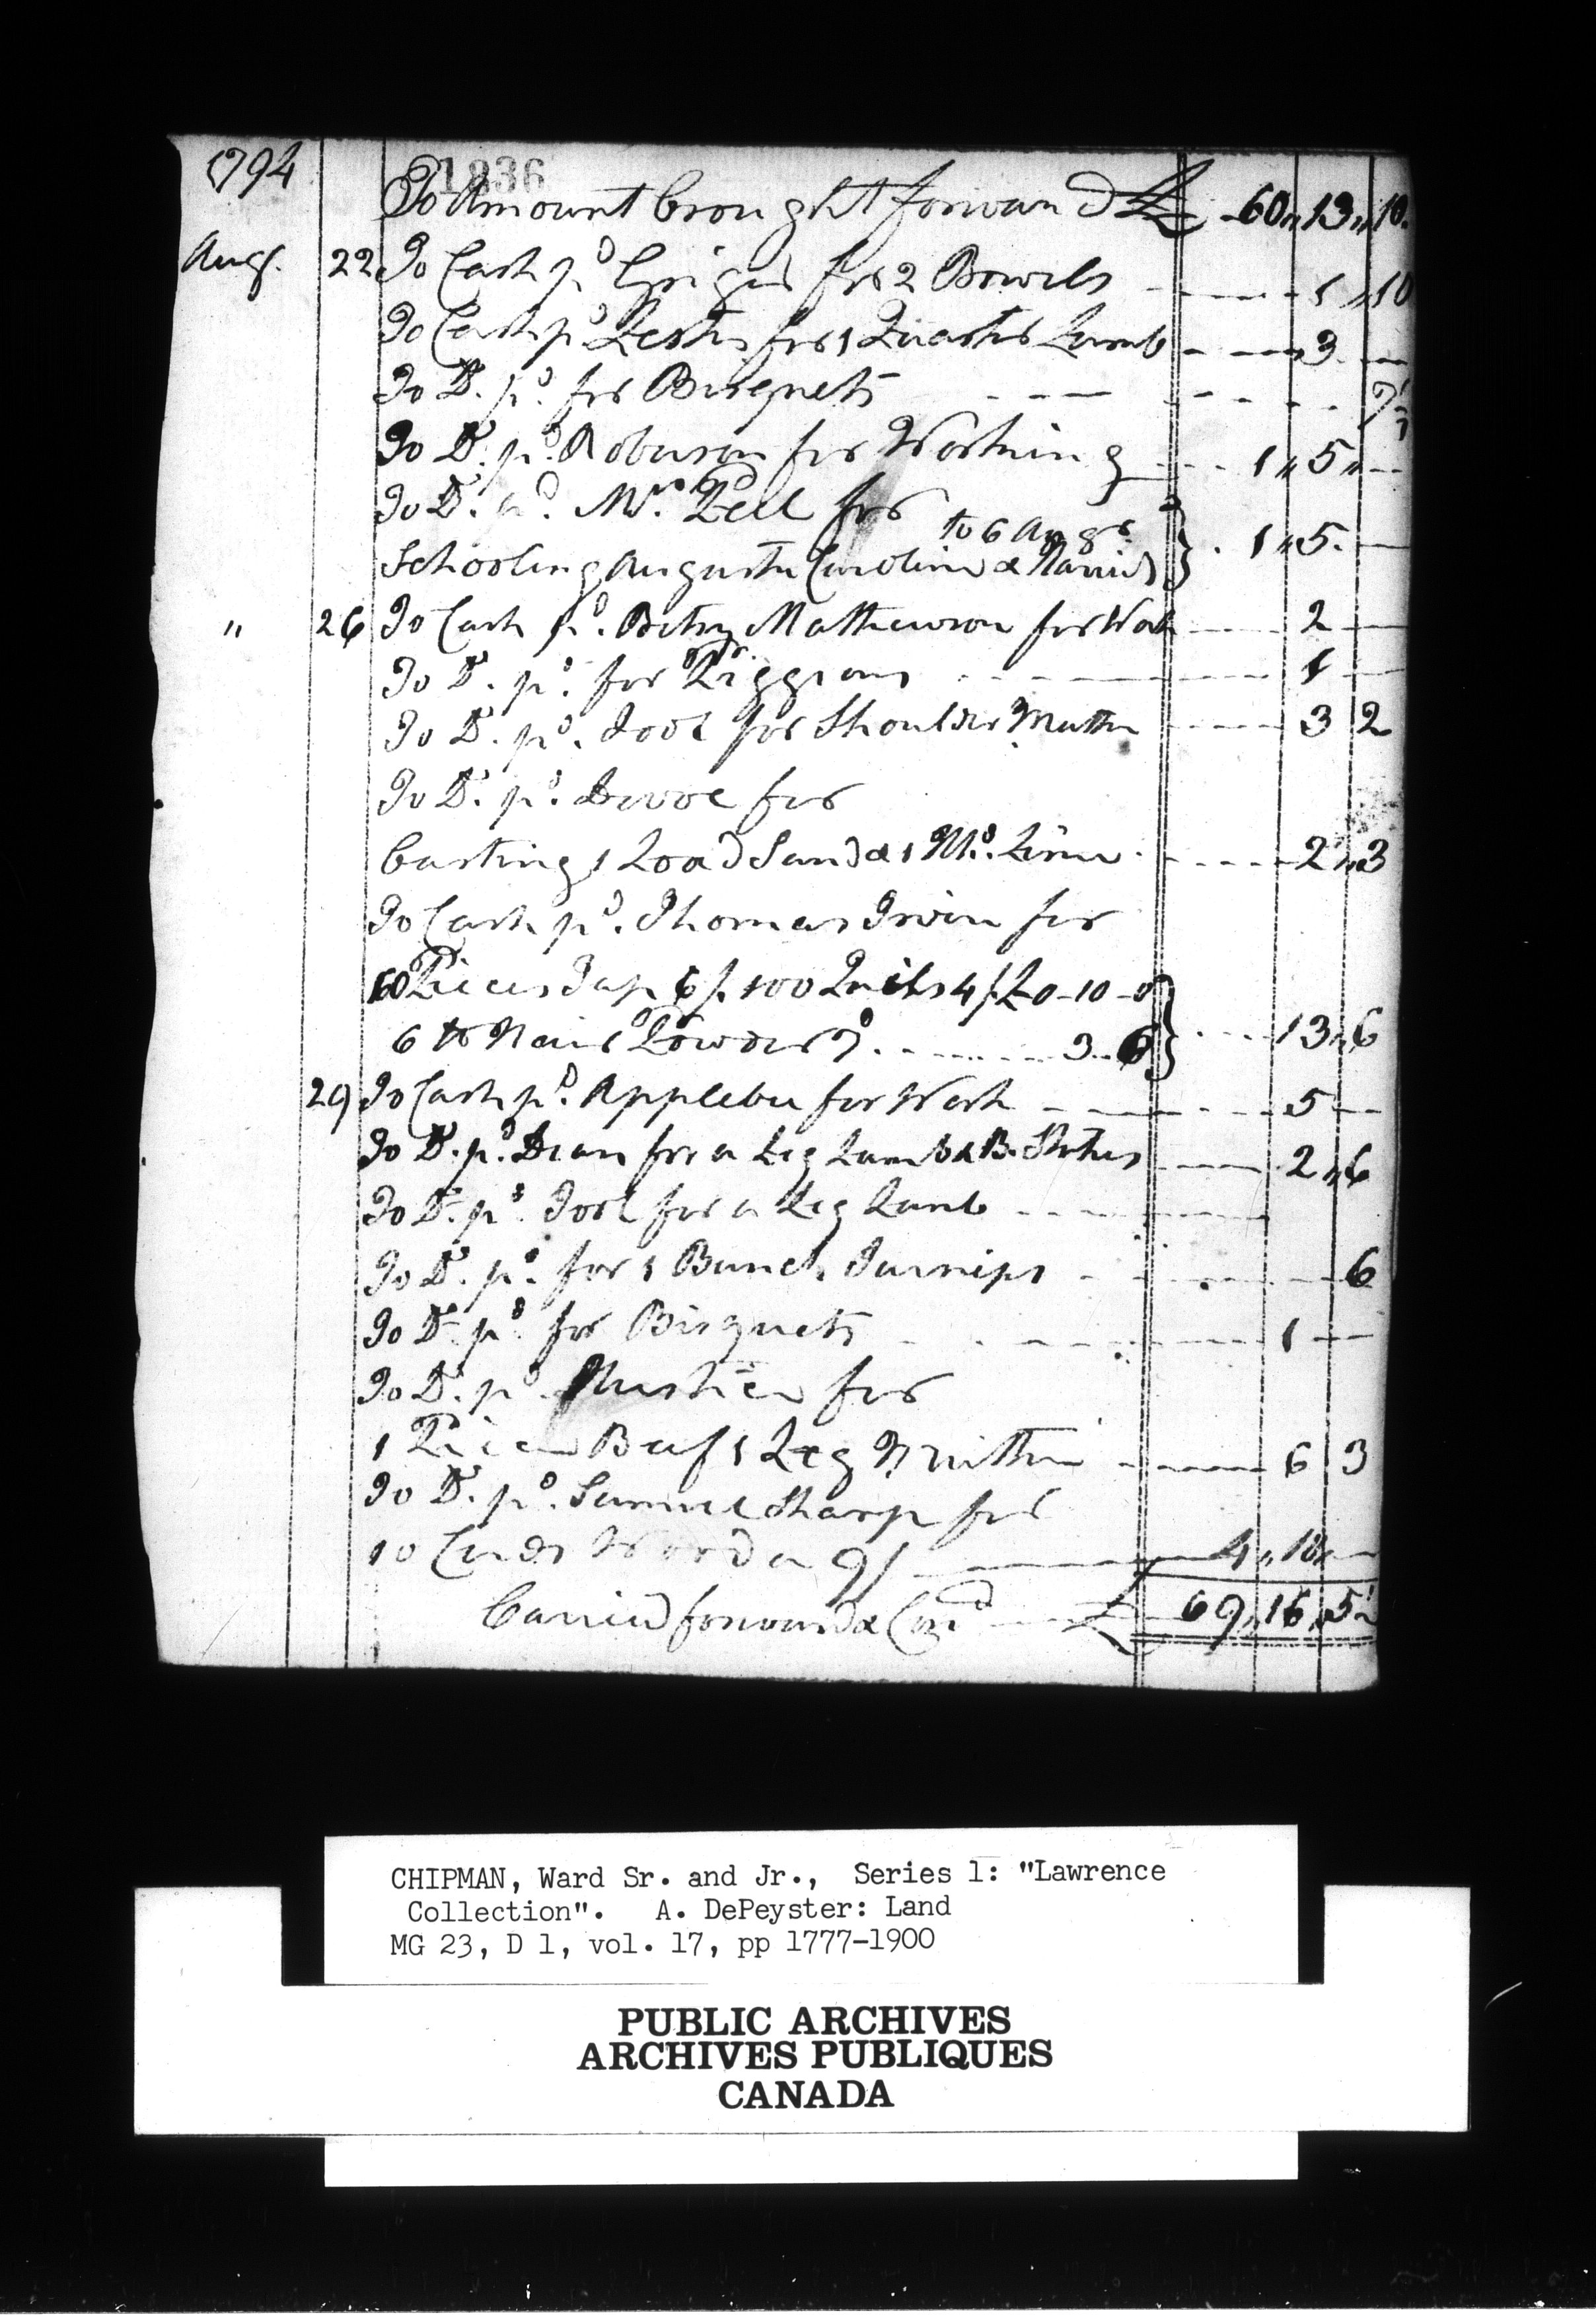 1794
1836
To Amount brought forward £ 60,, 13,, 10.
Augt. 22 To Cash pd Grigus for 2 Bowels 1,, 10
To Cash pd Lester for 1 Quarter Lamb 3
To Do. pd. for Bisquets 7½
To Do. pd. Robinson for Washing 1,, 5,,
To Do. pd. Mrs. Pell for
to 6 Augt.
Schooling Augusta Caroline & } 1,, 5.
" 26 To Cash pd. Betsy Mathewson for Work 2
To Do. pd. for 1
To Do. pd. Fool for Shoulder Mutton 3 2
To Do. pd. Devoe for
Carting 1 Load Sand & 1 Do. Lime 2,, 3
To Cash pd. Thomas Irvin for
10 Pieces Tape 6/. 100 Quils 4/ £0-10-0 }
6 lb Hair Powder 7d. 3..6 } 13,, 6
29 To Cash pd. Applebee for Work 5
To Do. pd. Dean for a Leg Lamb & B. 2,, 6
To Do. pd. Fool for a Leg Lamb
To Do. pd. for 1 Bunch Turnips 6
To Do. pd. for Bisquets 1
To Do. pd. for
1 Piece Beef 1 Leg Mutton 6 3
To Do. pd. Samuel Sharp for
10 Cords Wood a 9/ 4,, 10,,
Carried forward & Crd £ 69,, 16,, 5½
CHIPMAN, Ward Sr. and Jr., Series 1: "Lawrence
Collection". A. DePeyster: Land
MG 23, D 1, vol. 17, pp 1777-1900
PUBLIC ARCHIVES
ARCHIVES PUBLIQUES
CANADA